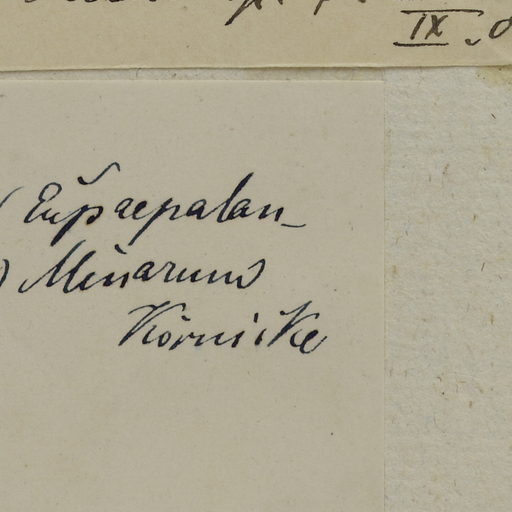 IX
(Eupaepalan_
) Minarum
Körnicke